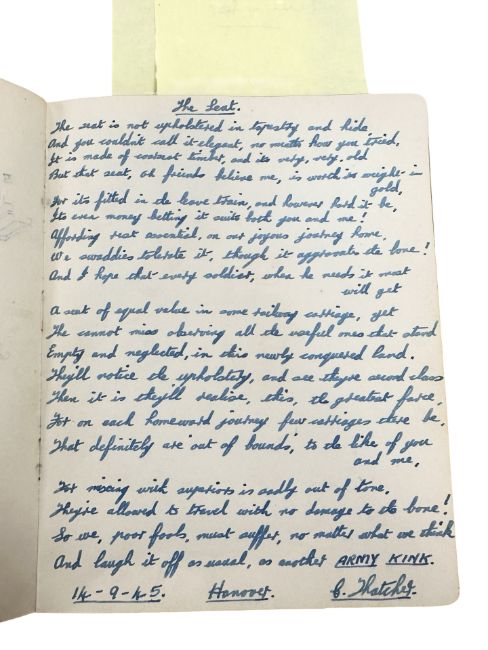 The Seat.
The seat is not upholstered in tapestry and hide,
And you couldn't call it elegant, no matter how you tried,
It is made of coarsest timber, and its very, very, old
But that seat, oh friends believe me, is worth its weight in
gold,
For its fitted in the leave train, and however hard it be,
Its even money betting it suits both you and me!
Affording rest essential, on our joyous journey home,
We swaddies tolerate it, though it aggravates the bone!
And I hope that every soldier, when he needs it most
will get
A seat of equal value in some railway carriage, yet
He cannot miss observing all the useful ones that stand
Empty and neglected, in this newly conquered land.
They'll notice the upholstery, and see theyre second class
Then it is they'll realise, this, the greatest farce,
For on each homeward journey few carriages there be,
That definitely are 'out of bounds', to the like of you
and me,
For mixing with superiors is sadly out of tone,
They're allowed to travel with no damage to the bone!
So we, poor fools, must suffer, no matter what we think
And laugh it off as usual, as another ARMY KINK.
14-9-45. Hanover. C. Thatcher.